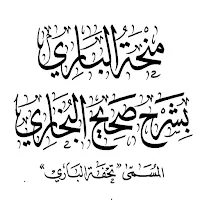 منحة الباري
بشرح صحيح البخاري
المسمى "تحفة الباري"